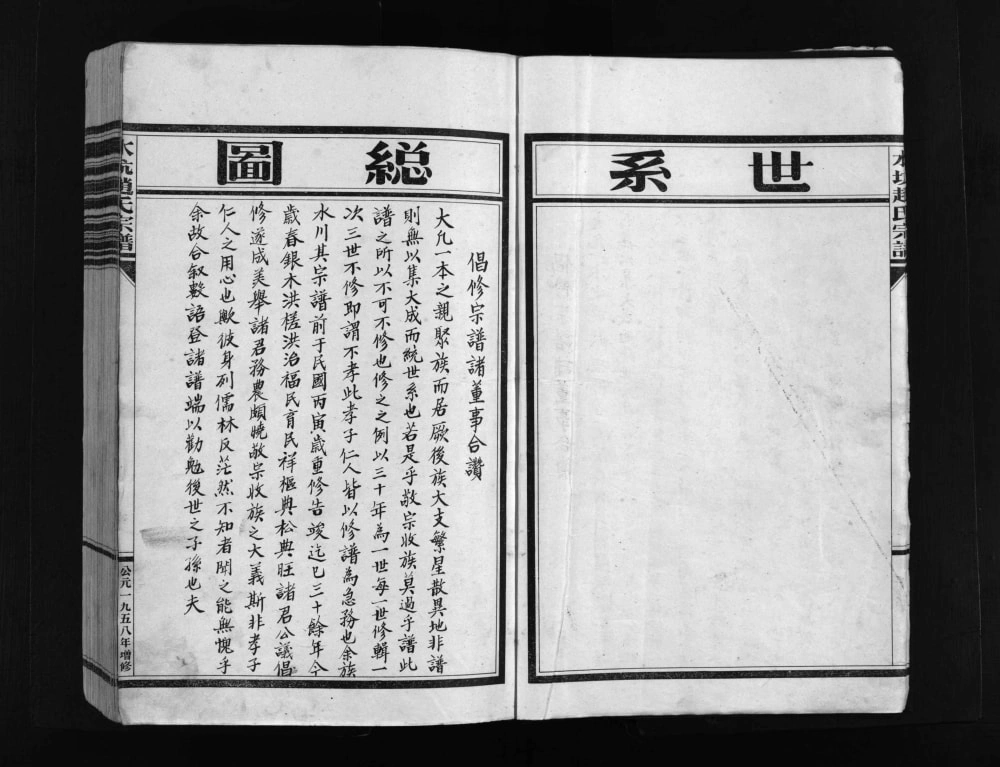 水坑趙氏宗譜
世系
總圖
倡修宗譜諸董事合讚
大凡一本之親聚族而居厥後族大支繁星散異地非譜
則無以集大成而統世系也若是乎敬宗收族莫過乎譜此
譜之所以不可不修也修之之例以三十年為一世每一世修輯一
次三世不修即謂不孝此孝子仁人皆以修譜為急務也余族
水川其宗譜前于民國丙寅歲重修告竣迄已三十餘年今
歲春銀木洪槎洪治福民育民祥樞典松典旺諸君公議倡
修遂成美舉諸君務農頗曉敬宗收族之大義斯非孝子
仁人之用心也歟彼身列儒林反茫然不知者聞之能無愧乎
余故合叙數語登諸譜端以勸勉後世之子孫也夫
水坑趙氏宗譜
公元一九五八年增修